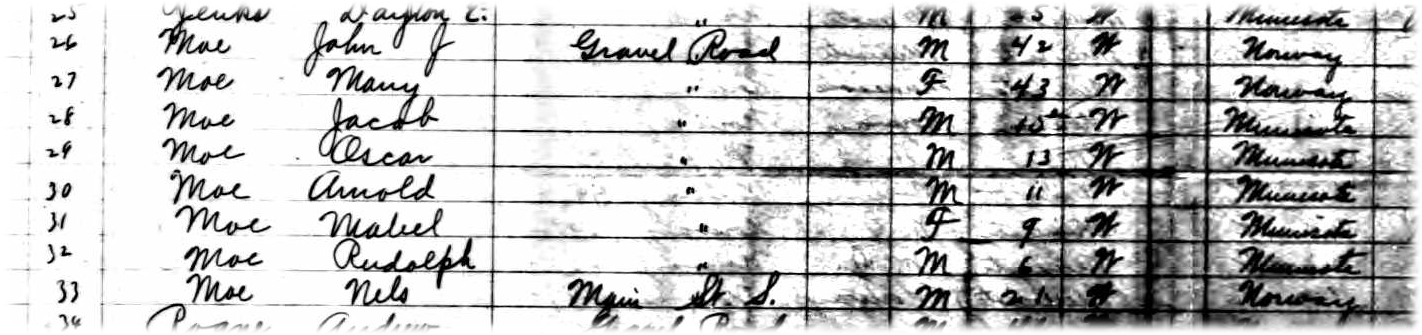 25 Jenks Dayton L. " M 25 W Minnesota
26 Moe John J Gravel Road M 42 W Norway
27 Moe Mary " F 43 W Norway
28 Moe Jacob " M W Minnesota
29 Moe Oscar " M 13 W Minnesota
30 Moe Arnold " M 11 W Minnesota
31 Moe Mabel " F 9 W Minnesota
32 Moe Rudolph " M 6 W Minnesota
33 Moe Nels Main St. S. M 21 W Norway
34 Andrew Gravel Road